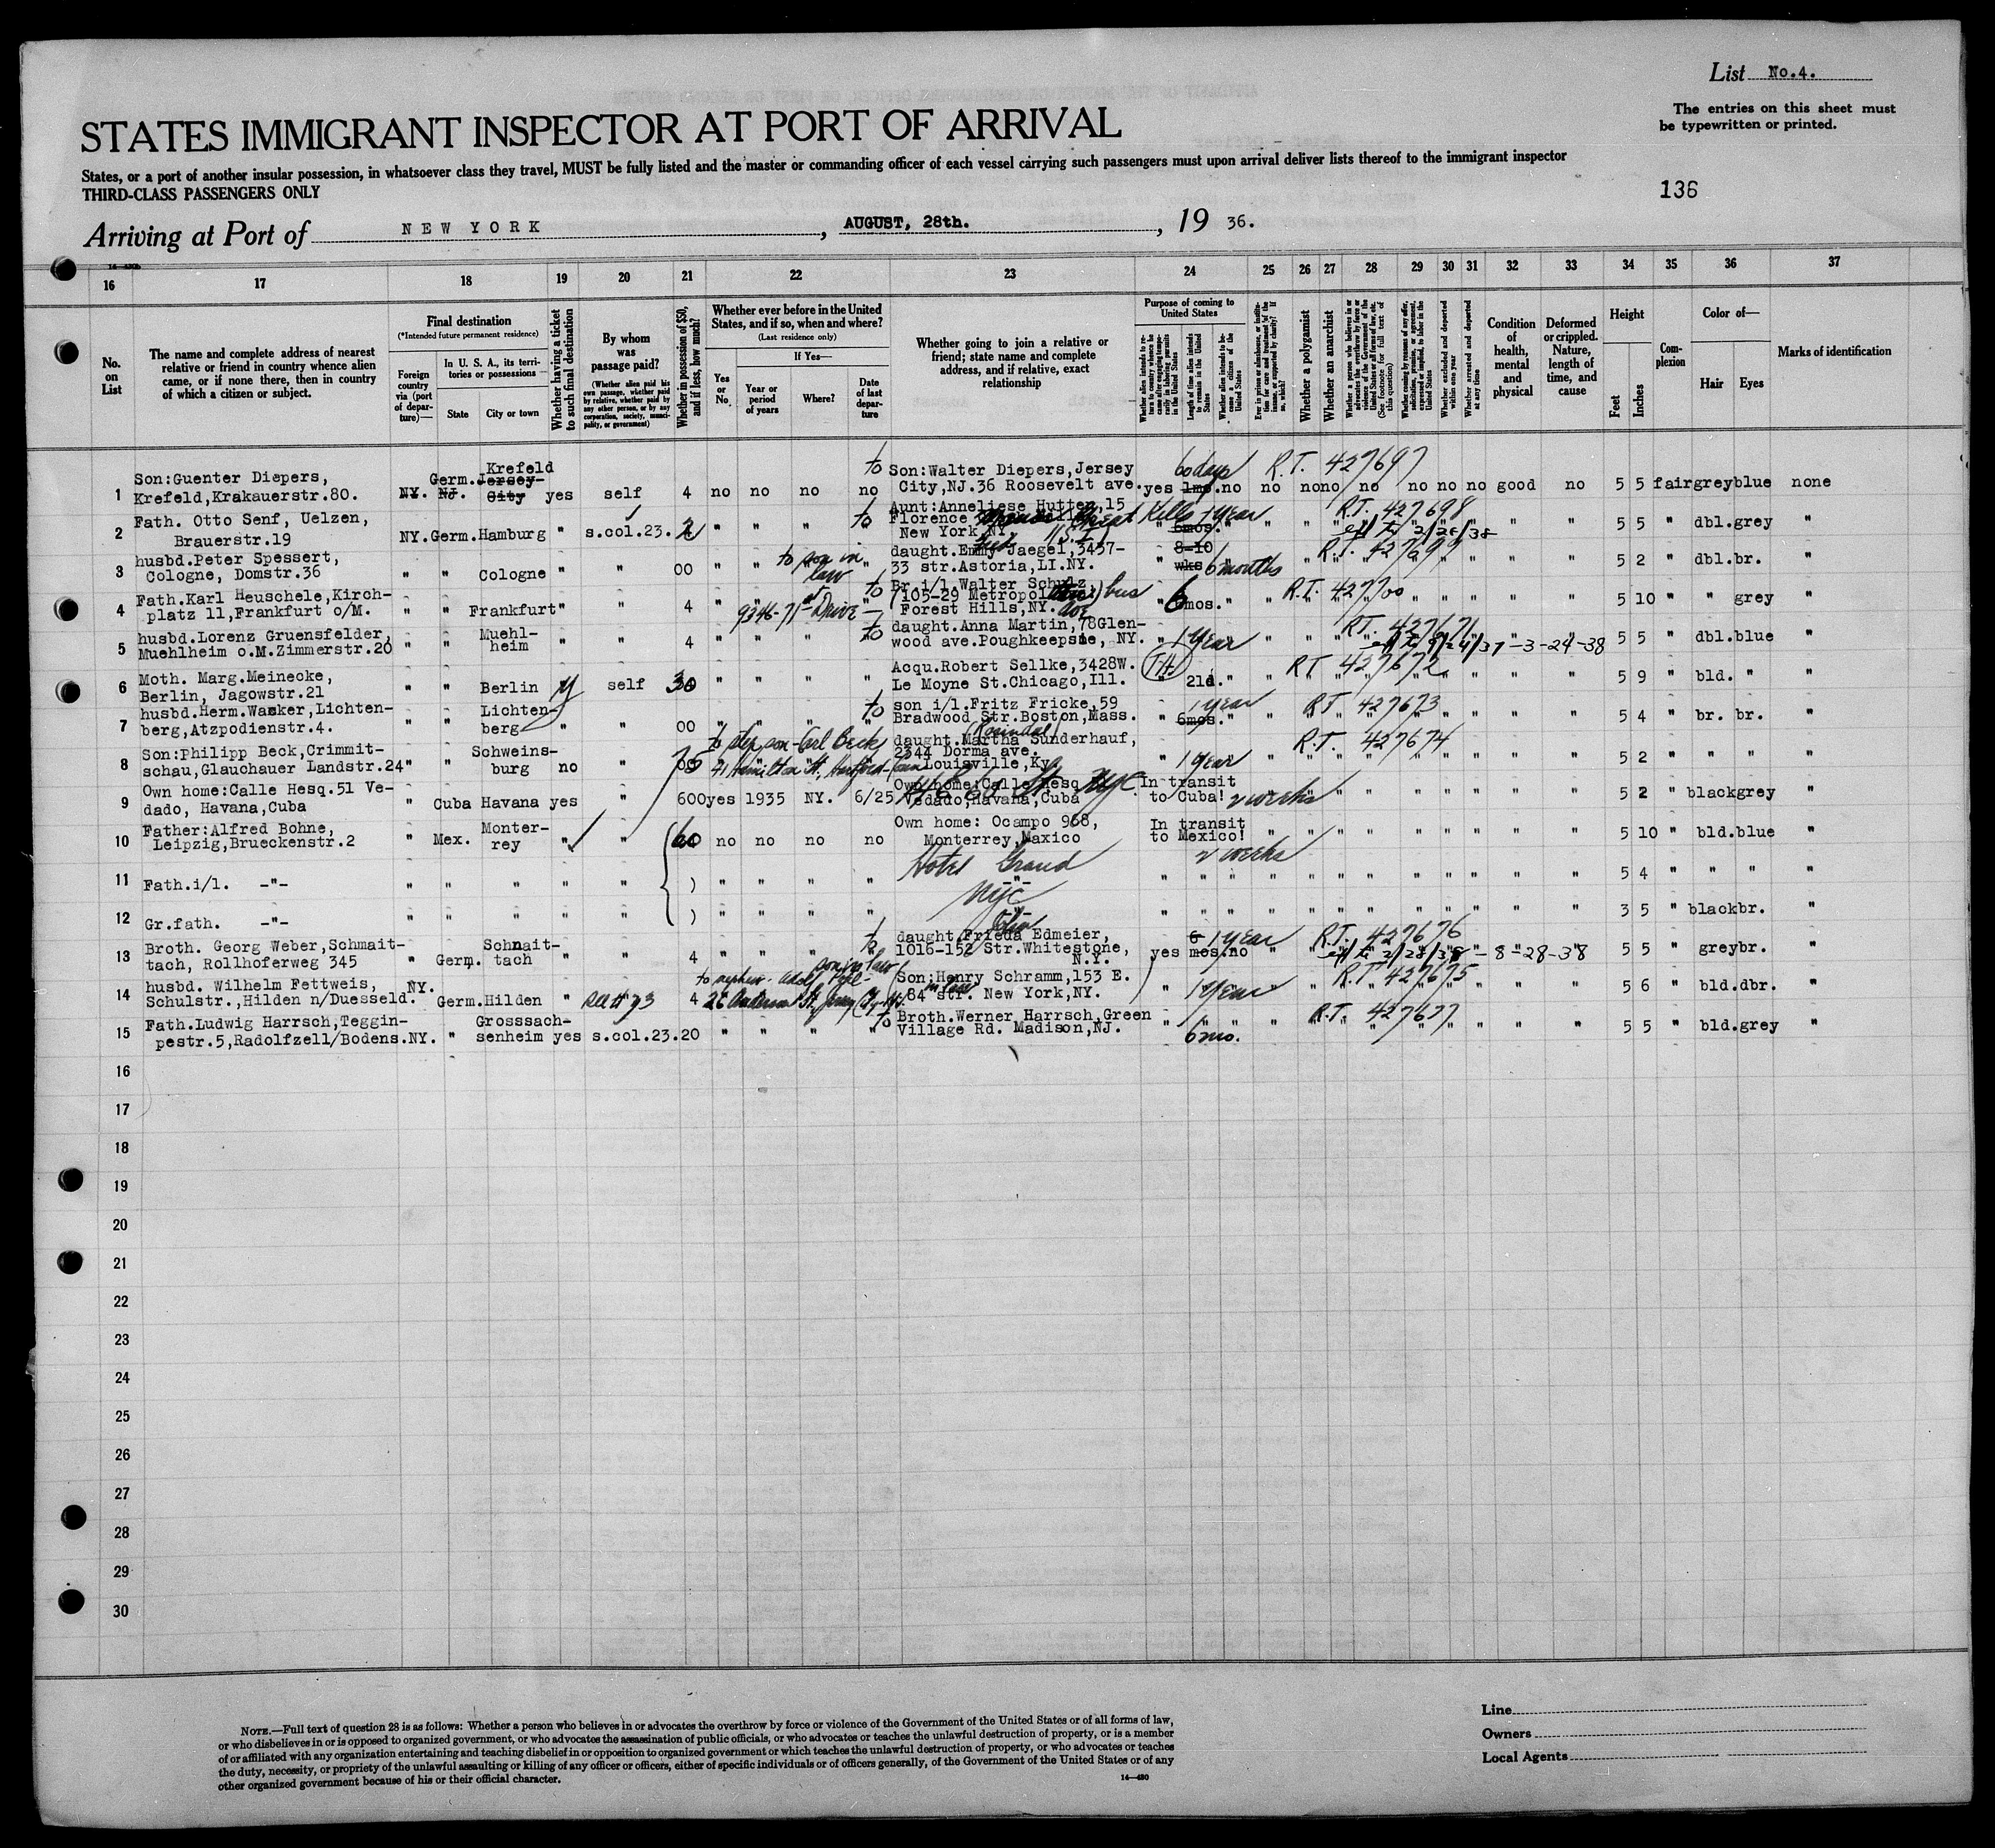 List No.4.
The entries on this sheet must
be typewritten or printed.
STATES IMMIGRANT INSPECTOR AT PORT OF ARRIVAL
States, or a port of another insular possession, in whatsoever class they travel, MUST be fully listed and the master or commanding officer of each vessel carrying such passengers must upon arrival deliver lists thereof to the immigrant inspector
THIRD-CLASS PASSENGERS ONLY
136
Arriving at Port of NEW YORK, AUGUST, 28th., 19 36.
16 17 18 19 20 21 22 23 24 25 26 27 28 29 30 31 32 33 34 35 36 37
No. on List
The name and complete address of nearest relative or friend in country whence alien came, or if none there, then in country of which a citizen or subject.
Final destination
(*Intended future permanent residence)
Foreign country via (port of departure)—
In U. S. A., its territories or possessions
State
City or town
Whether having a ticket to such final destination
By whom was passage paid?
(Whether alien paid his own passage, whether paid by relative, whether paid by any other person, or by any corporation, society, municipality, or government)
Whether in possession of $50, and if less, how much?
Whether ever before in the United States, and if so, when and where?
(Last residence only)
Yes or No
If Yes—
Year or period of years
Where?
Date of last departure
Whether going to join a relative or friend; state name and complete address, and if relative, exact relationship
Purpose of coming to United States
Length of time alien intends to remain in the United States
Whether alien intends to become a citizen of the United States
Whether a polygamist
Whether an anarchist
Whether excluded and deported within one year
Whether arrested and deported at any time
Condition of health, mental and physical
Deformed or crippled. Nature, length of time, and cause
Height
Feet
Inches
Complexion
Color of—
Hair
Eyes
Marks of identification
1 Son:Guenter Diepers, Krefeld,Krakauerstr.80. NY. NJ. Germ. Jersey City Krefeld yes self 4 no no no no to Son:Walter Diepers,Jersey City,NJ.36 Roosevelt ave. yes 1mo. 60 days no no no no no no no no good no 5 5 fair grey blue none R.T. 427697
2 Fath. Otto Senf, Uelzen, Brauerstr.19 NY. Germ. Hamburg " s.col.23. " " " to Aunt:Anneliese Hutten,15 Florence Great Kills New York,NY. S.I. " 6mos. 1 year " " R.T. 427698 " " 5 5 " dbl.grey "
3 husbd.Peter Spessert, Cologne, Domstr.36 " " Cologne " " 00 " " to son in law daught.Emmy Jaegel,3457-33 str.Astoria,LI.NY. " 8-10 wks 6 months " R.T. 427699 " " 5 2 " dbl.br. "
4 Fath.Karl Heuschele,Kirchplatz 11,Frankfurt o/M. " " Frankfurt " " 4 " 9346-71st Drive to Br.i/l.Walter Schulz 7105-29 Metropol Forest Hills,NY. ave " 6 mos. " " R.T. 427700 " " 5 10 " " grey "
5 husbd.Lorenz Gruensfelder, Muehlheim o.M.Zimmerstr.20 " " Muehlheim " " 4 " " " to daught.Anna Martin,78Glenwood ave.Poughkeepsie, NY. " 1 year " " R.T. 427671 -3-24-38 5 5 " dbl.blue "
6 Moth. Marg.Meinecke, Berlin, Jagowstr.21 " " Berlin self 30 " " " " Acqu.Robert Sellke,3428W. Le Moyne St.Chicago,Ill. 21d. " " R.T. 427672 " " 5 9 " bld. " "
7 husbd.Herm.Wasker,Lichtenberg,Atzpodienstr.4. " " Lichtenberg " 00 " " " to son i/l.Fritz Fricke,59 Bradwood Str.Boston,Mass. " 6mos. 1 year " " R.T. 427673 " " 5 4 " br. br. "
8 Son:Philipp Beck,Crimmitschau,Glauchauer Landstr.24 " " Schweinsburg no " to step son-Carl Beck 41 Hamilton St, Hartford-Conn daught.Martha Sunderhauf, 2344 Dorma ave. Louisville,Ky. " 1 year " R.T. 427674 " " 5 2 " " " "
9 Own home:Calle Hesq.51 Vedado, Havana,Cuba " Cuba Havana yes " 600 yes 1935 NY. 6/25 Own home:Calle Hesq Vedado,Havana,Cuba In transit to Cuba! 2 weeks " " 5 2 " black grey "
10 Father:Alfred Bohne, Leipzig,Brueckenstr.2 " Mex. Monterrey " " 60 no no no no Own home: Ocampo 968, Monterrey,Maxico In transit to Mexico! 2 weeks " " 5 10 " bld.blue "
Hotel Grand
NYC
11 Fath.i/l. -"- " " " " " ) " " " " -"- " " " 5 4 " " " "
12 Gr.fath. -"- " " " " " ) " " " " -"- " " " 3 5 " black br. "
13 Broth. Georg Weber,Schmaittach, Rollhoferweg 345 " Germ. Schnaittach " " 4 " " " to daught.Frieda Edmeier, 1016-152 Str.Whitestone, N.Y. yes 6 mos. 1 year no " R.T. 427676 - 8-28-38 5 5 " grey br. "
14 husbd. Wilhelm Fettweis, Schulstr.,Hilden n/Duesseld. NY. Germ. Hilden " 4 to nephew - Adolf Son:Henry Schramm,153 E. 84 str. New York,NY. " 1 year " R.T. 427675 " " 5 6 " bld.dbr. "
15 Fath.Ludwig Harrsch,Tegginpestr.5,Radolfzell/Bodens. NY. " Grosssachsenheim yes s.col.23. 20 " " " to Broth.Werner Harrsch,Green Village Rd. Madison,NJ. " 6 mo. " " R.T. 427677 " " 5 5 " bld.grey "
16
17
18
19
20
21
22
23
24
25
26
27
28
29
30
NOTE.—Full text of question 28 is as follows: Whether a person who believes in or advocates the overthrow by force or violence of the Government of the United States or of all forms of law,
or who disbelieves in or is opposed to organized government, or who advocates the assassination of public officials, or who advocates or teaches the unlawful destruction of property, or is a member
of or affiliated with any organization entertaining and teaching disbelief in or opposition to organized government or which teaches the unlawful destruction of property, or who advocates or teaches
the duty, necessity, or propriety of the unlawful assaulting or killing of any officer or officers, either of specific individuals or of officers generally, of the Government of the United States or of any
other organized government because of his or their official character.
14—480
Line
Owners
Local Agents